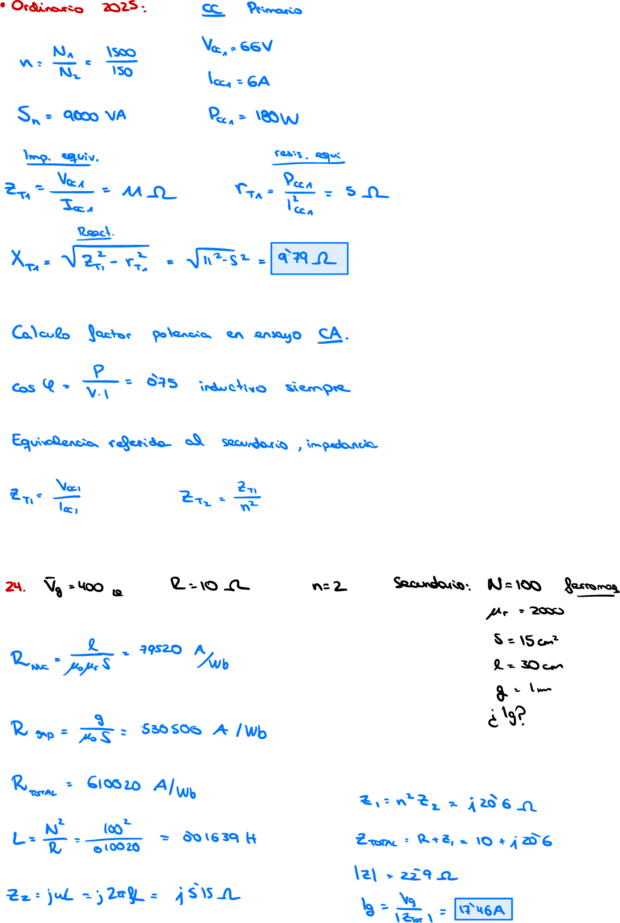 • Ordinario 2025:
CC Primario
n = N₁/N₂ = 1500/150
Vcc₁ = 66V
Icc₁ = 6A
Sn = 9000 VA
Pcc₁ = 180W
Imp. equiv.
resis. equi
Z_T1 = Vcc1/Icc1 = 11 Ω
r_T1 = Pcc1/I²cc1 = 5 Ω
React.
X_T1 = √(Z²_T1 - r²_T1) = √(11² - 5²) = 9'79 Ω
Calculo factor potencia en ensayo CA.
cos φ = P/V·I = 0'75 inductivo siempre
Equivalencia referida al secundario, impedancia
Z_T1 = Vcc1/Icc1
Z_T2 = Z_T1/n²
24. V̄g = 400 R = 10 Ω n=2 Secundario: N=100 ferromag
μr = 2000
S = 15 cm²
l = 30 cm
g = 1mm
¿Ig?
R = l/μ₀μrS = 79520 A/Wb
R gap = g/μ₀S = 530500 A/Wb
R_TOTAL = 610020 A/Wb
L = N²/R = 100²/610020 = 0'01639 H
Z₂ = jωL = j2πfL = j5'15 Ω
Z₁ = n² Z₂ = j20'6 Ω
Z_TOTAL = R + Z₁ = 10 + j20'6
|Z| = 22'9 Ω
Ig = Vg/|Ztot| = 17'46A